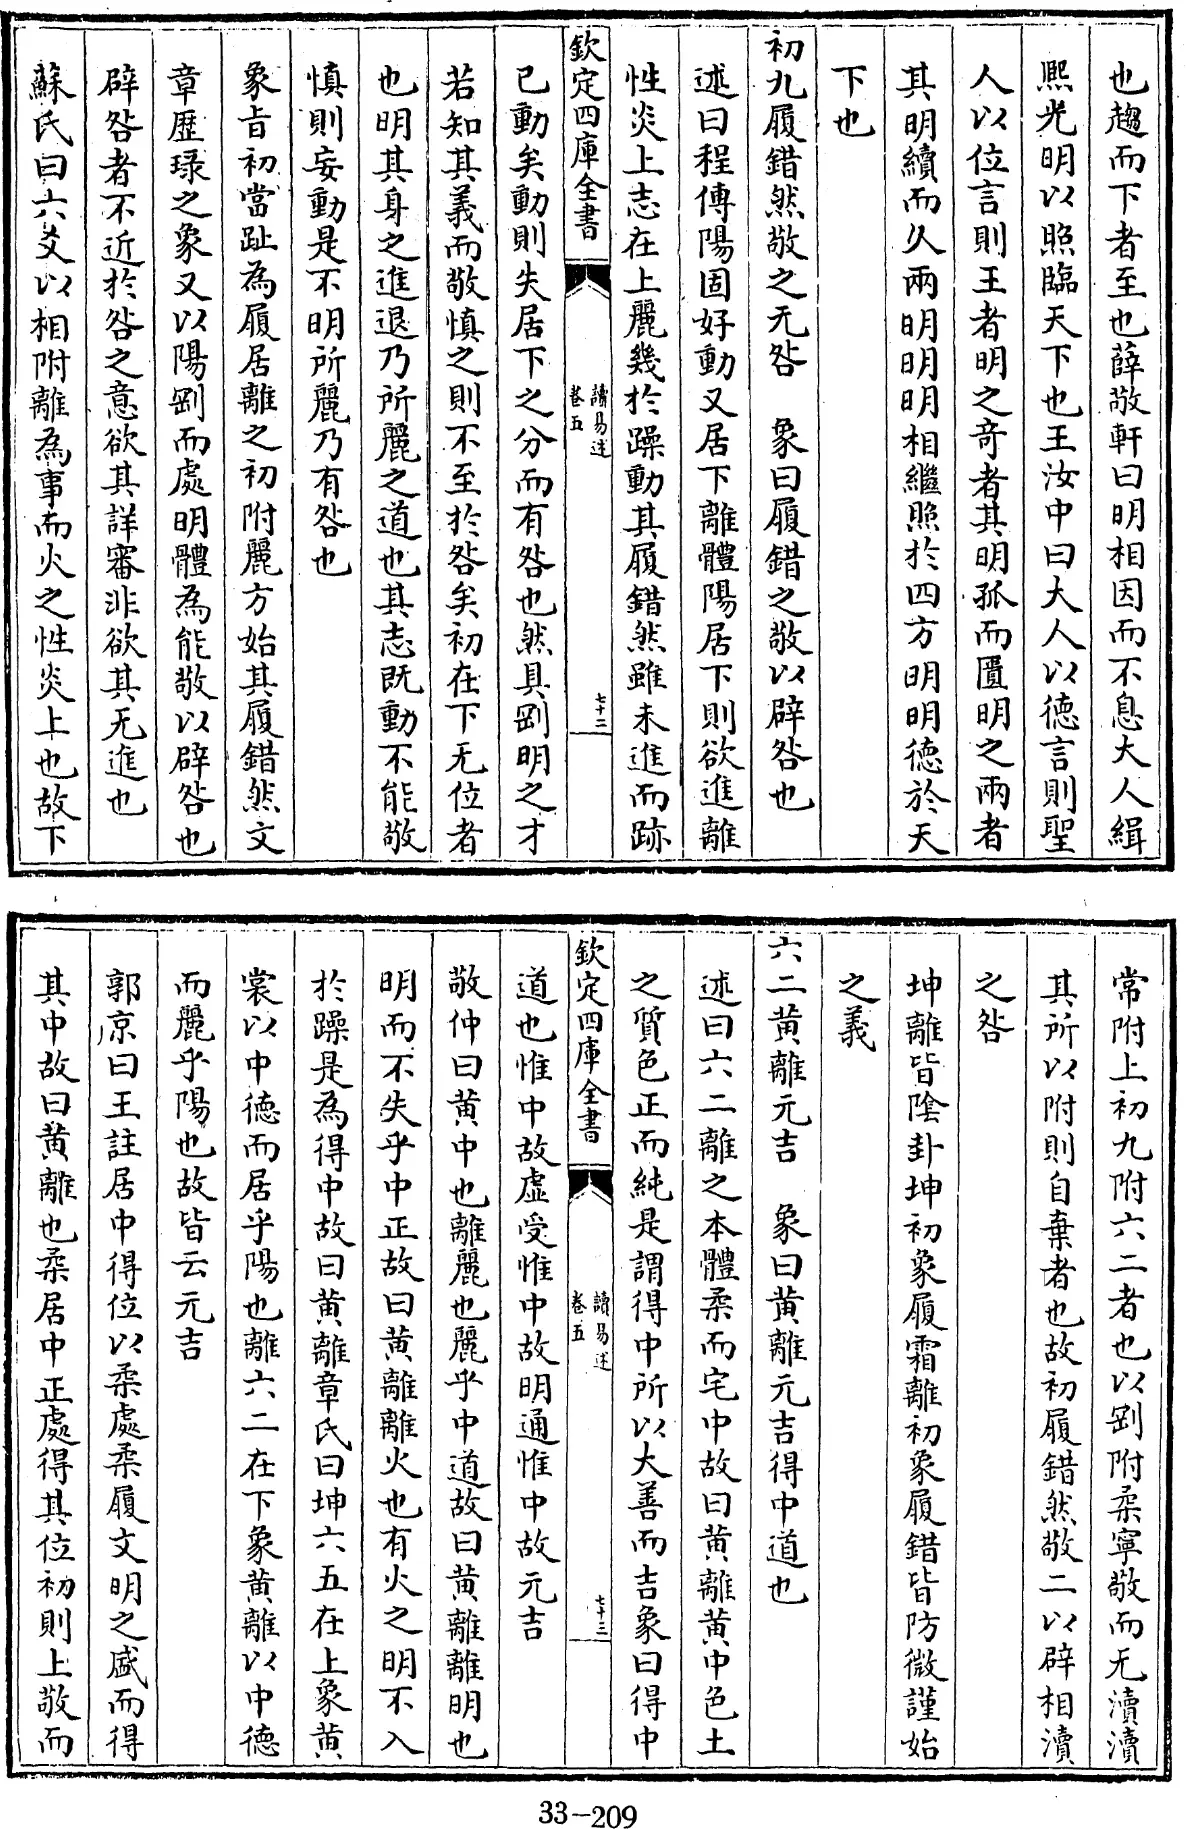 也趨而下者至也薛敬軒曰明相因而不息大人緝
熙光明以照臨天下也王汝中曰大人以德言則聖
人以位言則王者明之竒者其明孤而匱明之兩者
其明續而久兩明明明相繼照於四方明明德於天
下也
初九履錯然敬之无咎　象曰履錯之敬以辟咎也
述曰程傳陽固好動又居下離體陽居下則欲進離
性炎上志在上麗幾於躁動其履錯然雖未進而跡
欽定四庫全書
讀易述
卷五
七十二
已動矣動則失居下之分而有咎也然具剛明之才
若知其義而敬慎之則不至於咎矣初在下无位者
也明其身之進退乃所麗之道也其志既動不能敬
慎則妄動是不明所麗乃有咎也
象旨初當趾為履居離之初附麗方始其履錯然文
章歷琭之象又以陽剛而處明體為能敬以辟咎也
辟咎者不近於咎之意欲其詳審非欲其无進也
蘇氏曰六爻以相附離為事而火之性炎上也故下
常附上初九附六二者也以剛附柔寧敬而无瀆瀆
其所以附則自棄者也故初履錯然敬二以辟相瀆
之咎
坤離皆陰卦坤初象履霜離初象履錯皆防微謹始
之義
六二黄離元吉　象曰黄離元吉得中道也
述曰六二離之本體柔而宅中故曰黄離黄中色土
之質色正而純是謂得中所以大善而吉象曰得中
欽定四庫全書
讀易述
卷五
七十三
道也惟中故虚受惟中故明通惟中故元吉
敬仲曰黄中也離麗也麗乎中道故曰黄離離明也
明而不失乎中正故曰黄離離火也有火之明不入
於躁是為得中故曰黄離章氏曰坤六五在上象黄
裳以中德而居乎陽也離六二在下象黄離以中德
而麗乎陽也故皆云元吉
郭京曰王註居中得位以柔處柔履文明之盛而得
其中故曰黄離也柔居中正處得其位初則上敬而
33-209